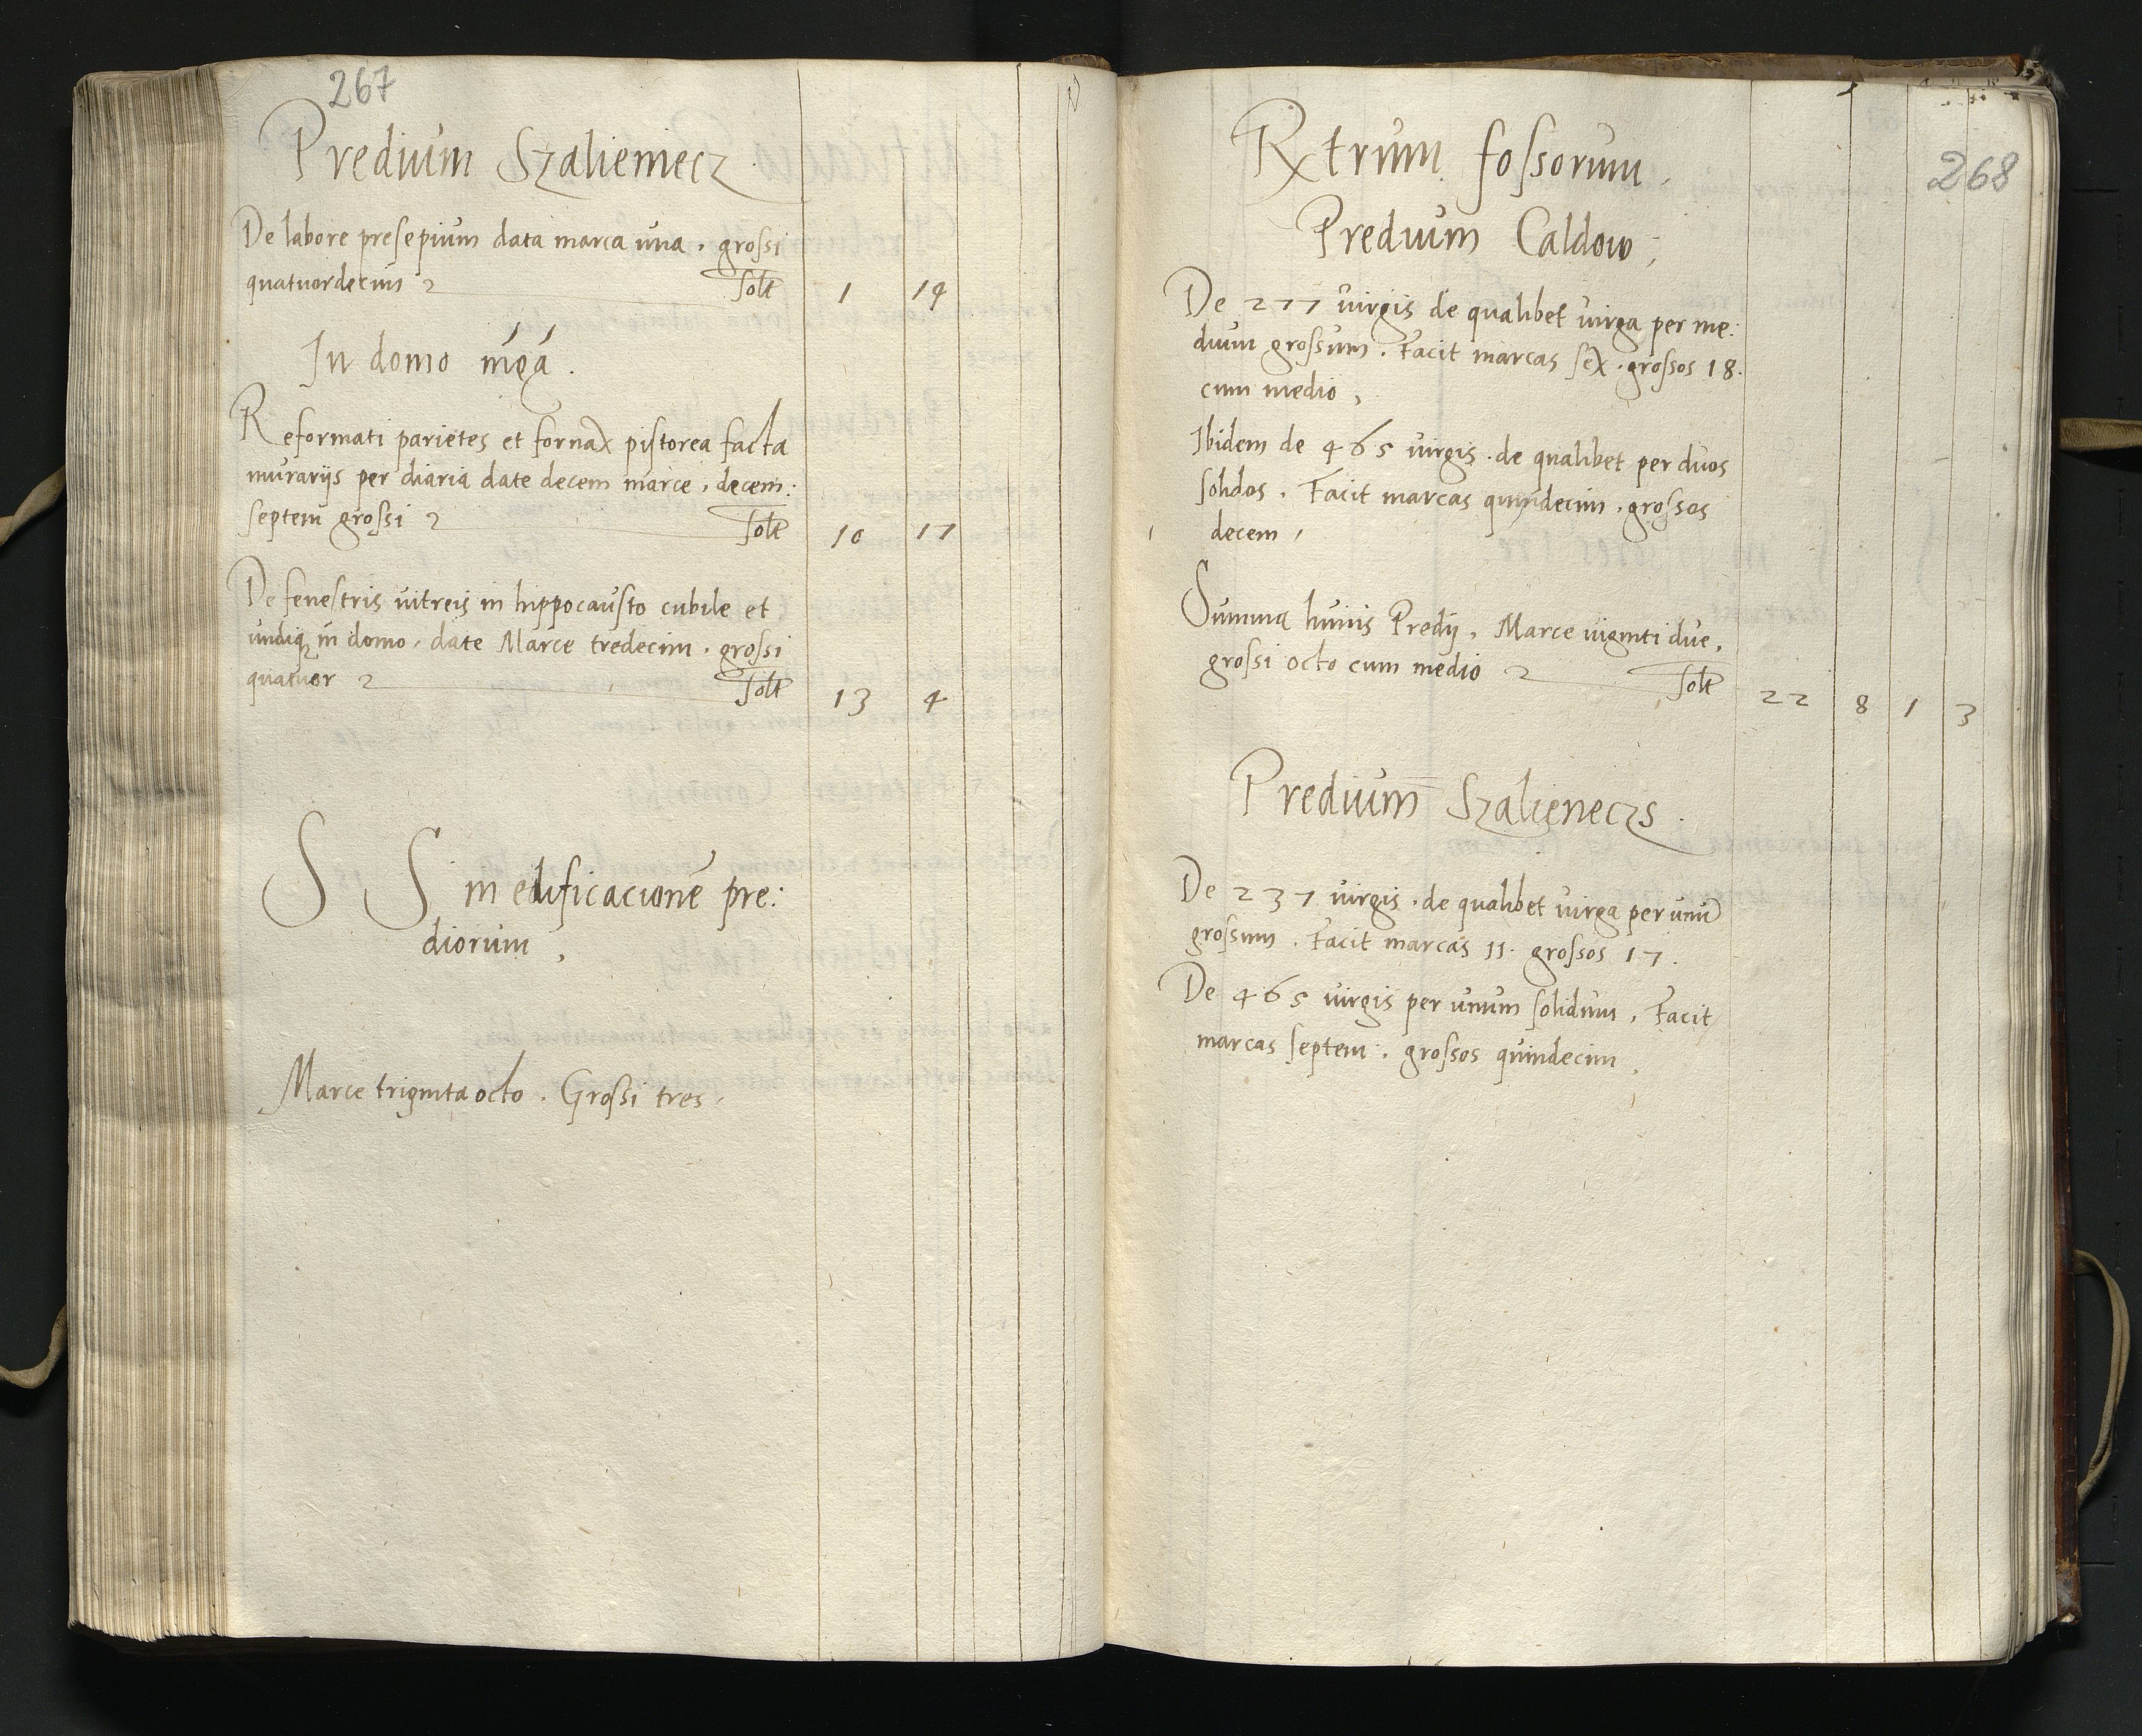 267
Predium Szalieniecz
De labore presepium data marca una. grossi
quatuordecim solt 1 14
In domo mea.
Reformati parietes et fornax pistorea facta
murarijs per diaria date decem marce, decem:
septem grossi solt 10 17
De fenestris vitreis in hippocausto cubile et
undiq in domo, date Marce tredecim. grossi
quatuor solt 13 4
S S in edificacione pre:
diorum,
Marce triginta octo. Grossi tres.
268
Rxtrum fossorum,
Predium Caldow,
De 277 virgis de qualibet virga per me:
dium grossum. Facit marcas sex. grossos 18.
cum medio,
Ibidem de 465 virgis. de qualibet per duos
solidos. Facit marcas quindecim. grossos
decem,
Summa huius Predij. Marce viginti due,
grossi octo cum medio solt 22 8 1 3
Predium Szalieneczs.
De 237 virgis. de qualibet virga per unu
grossum. Facit marcas 11. grossos 17.
De 465 virgis per unum solidum. Facit
marcas septem. grossos quindecim,